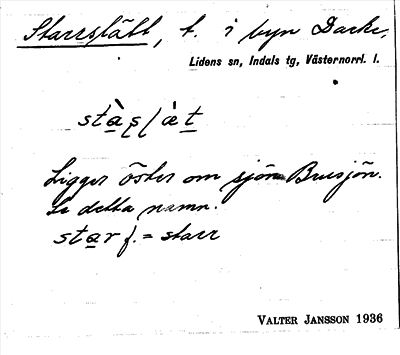 Starrslått, t. i byn Dacke,
Lidens sn, Indals tg, Västernorrl. l.
Ligger öster om sjön Brusjön.
Se detta namn.
star f. = starr
VALTER JANSSON 1936